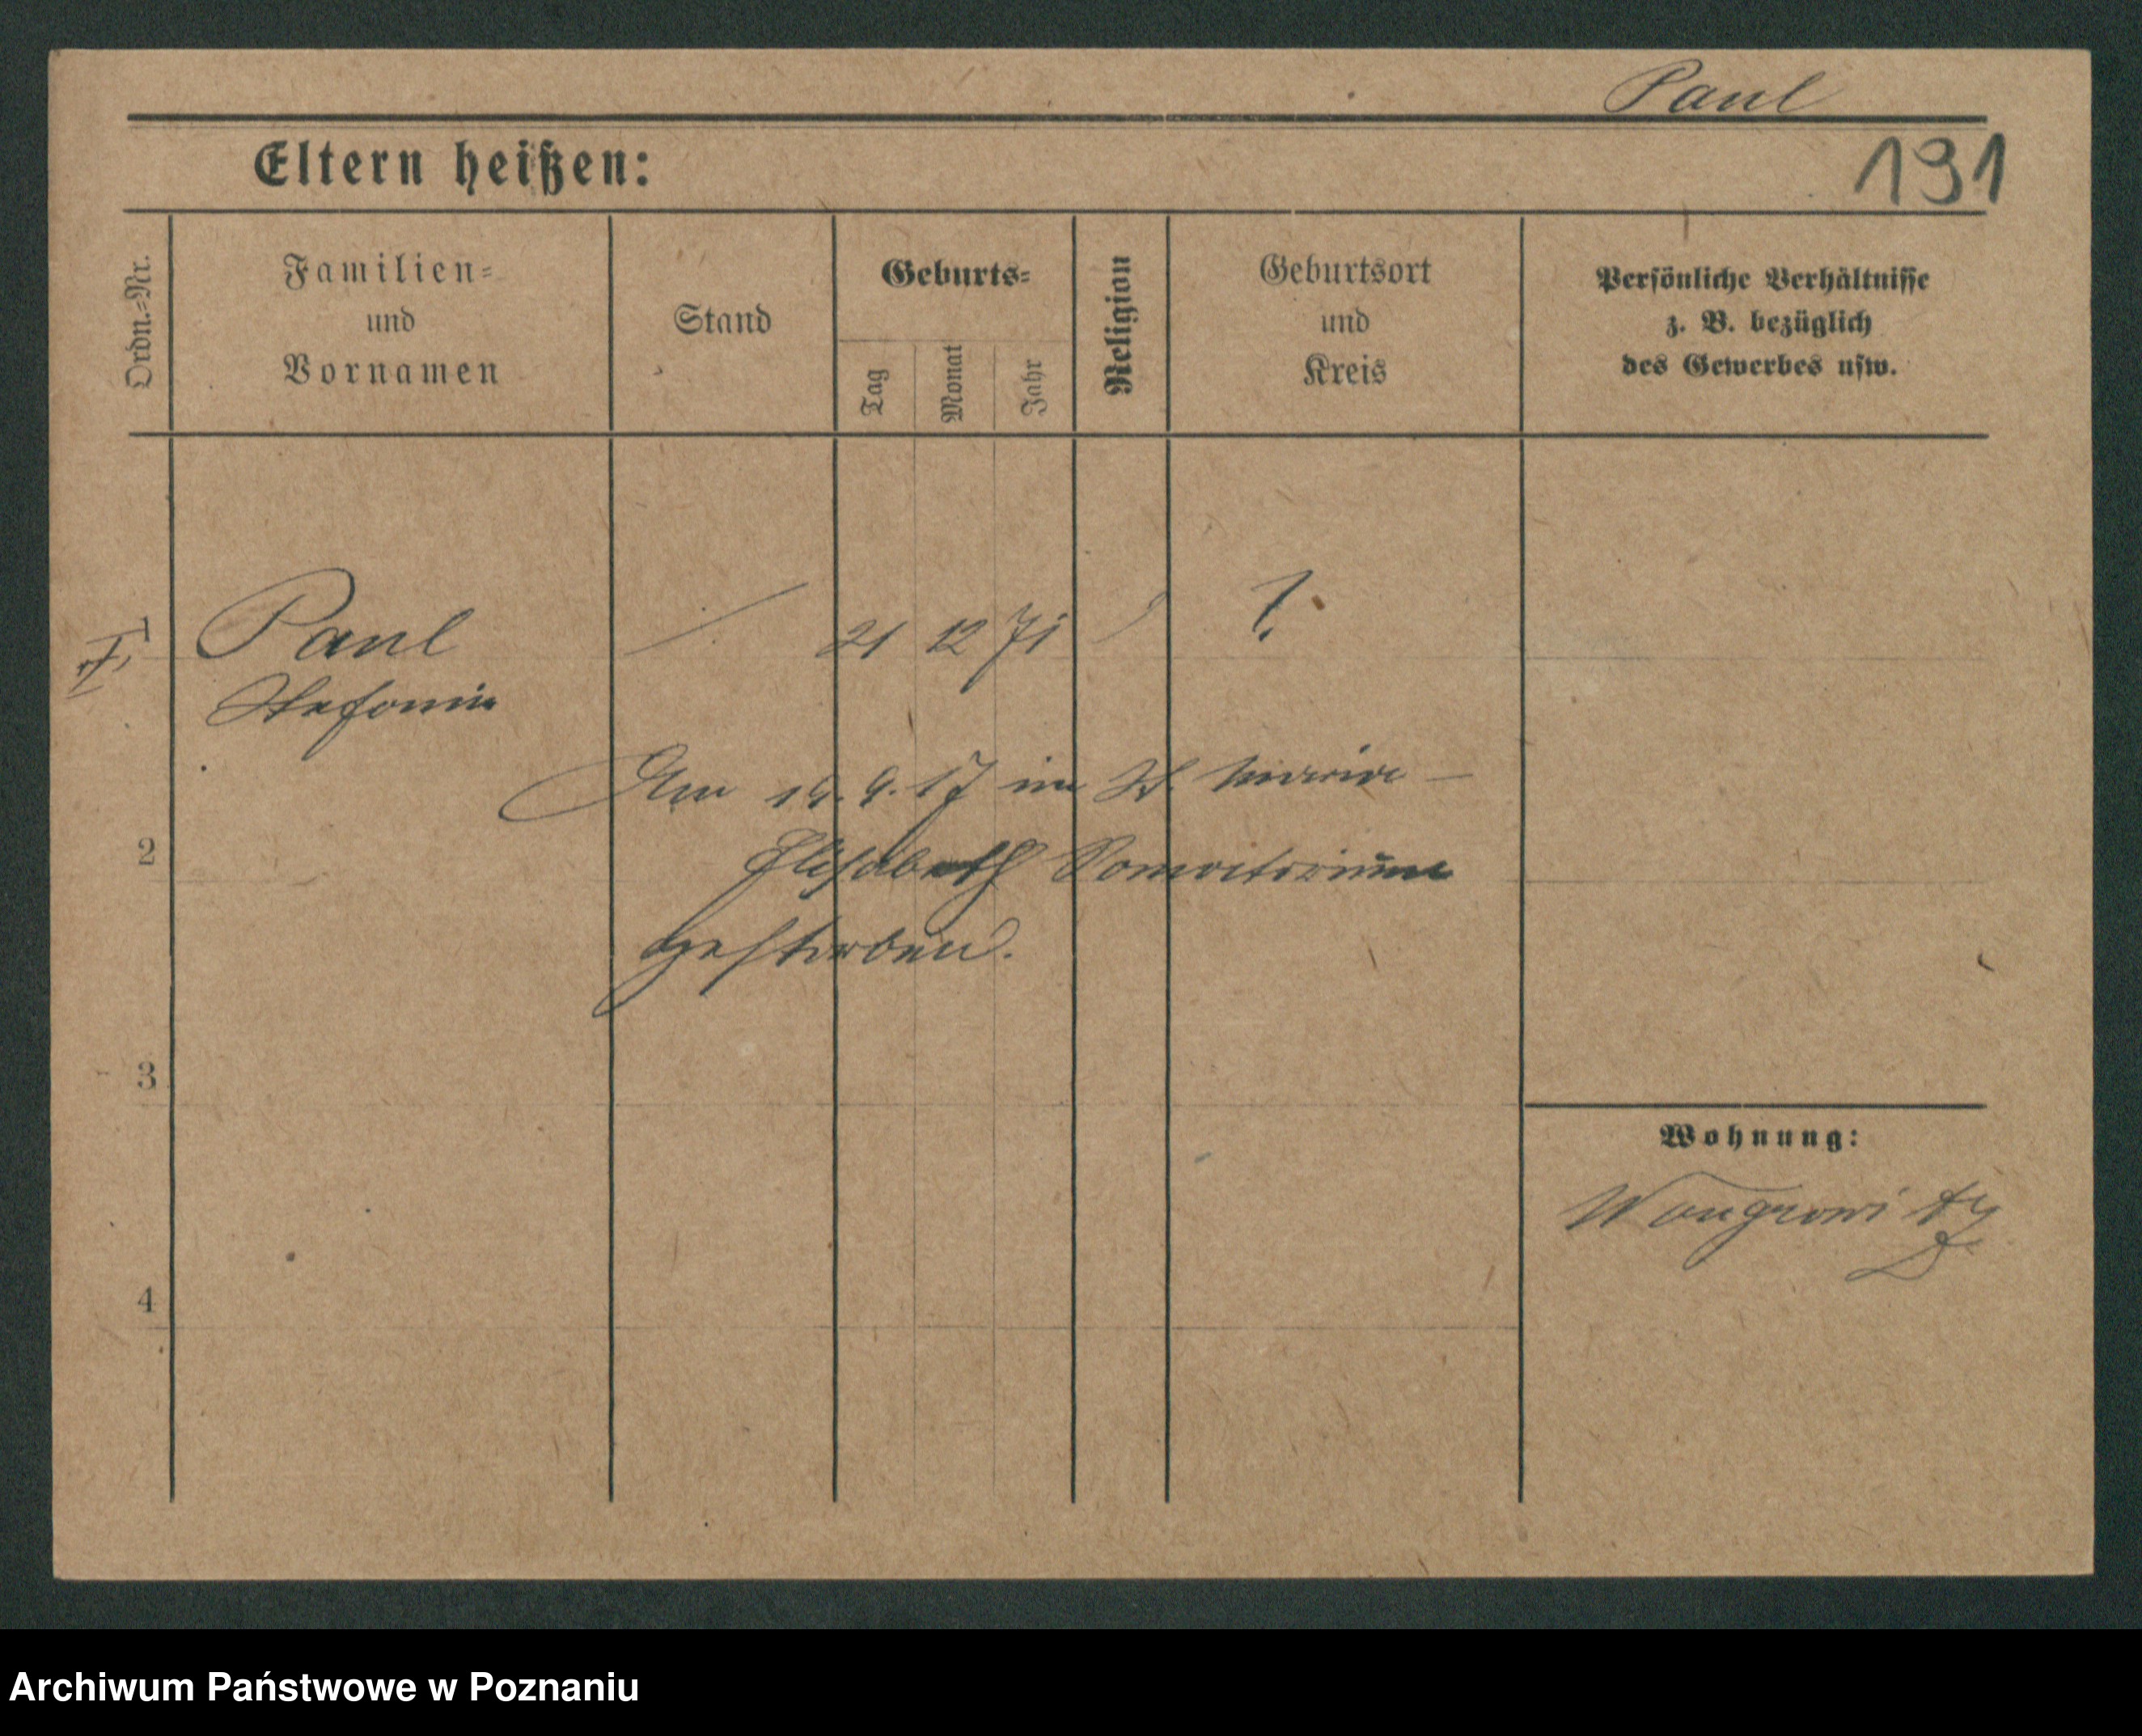 Paul
Eltern heißen:
191
Ordn.=Nr.
Familien=
und
Vornamen
Stand
Geburts=
Tag
Monat
Jahr
Religion
Geburtsort
und
Kreis
Persönliche Verhältnisse
z. B. bezüglich
des Gewerbes usw.
Paul
21 12 71
Stefanie
Am 9. 17 im St. Marien-
Elisabeth Sanatorium
gestorben.
2
3
4
Wohnung:
Wongrowitz
Archiwum Państwowe w Poznaniu